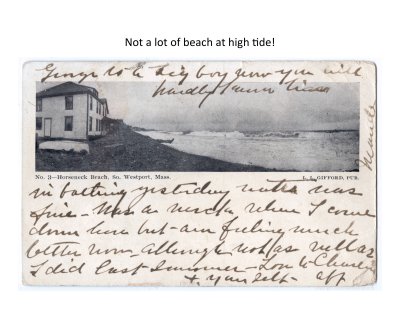 Not a lot of beach at high tide!
George is a big boy now you will
hardly know him
Maude
No. 3—Horseneck Beach, So. Westport, Mass.
L. L. GIFFORD, PUB.
in bathing yesterday water was
fine - Was a wreck when I came
down here but am feeling much
better now - although not as well as
I did last Summer - Love to Charley
+ yourself - aff